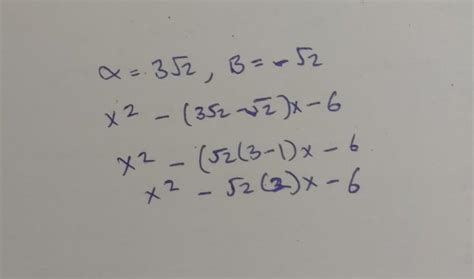 α = 3√2, B = -√2
x² - (3√2 - √2)x - 6
x² - (√2(3-1)x - 6
x² - √2(2)x - 6